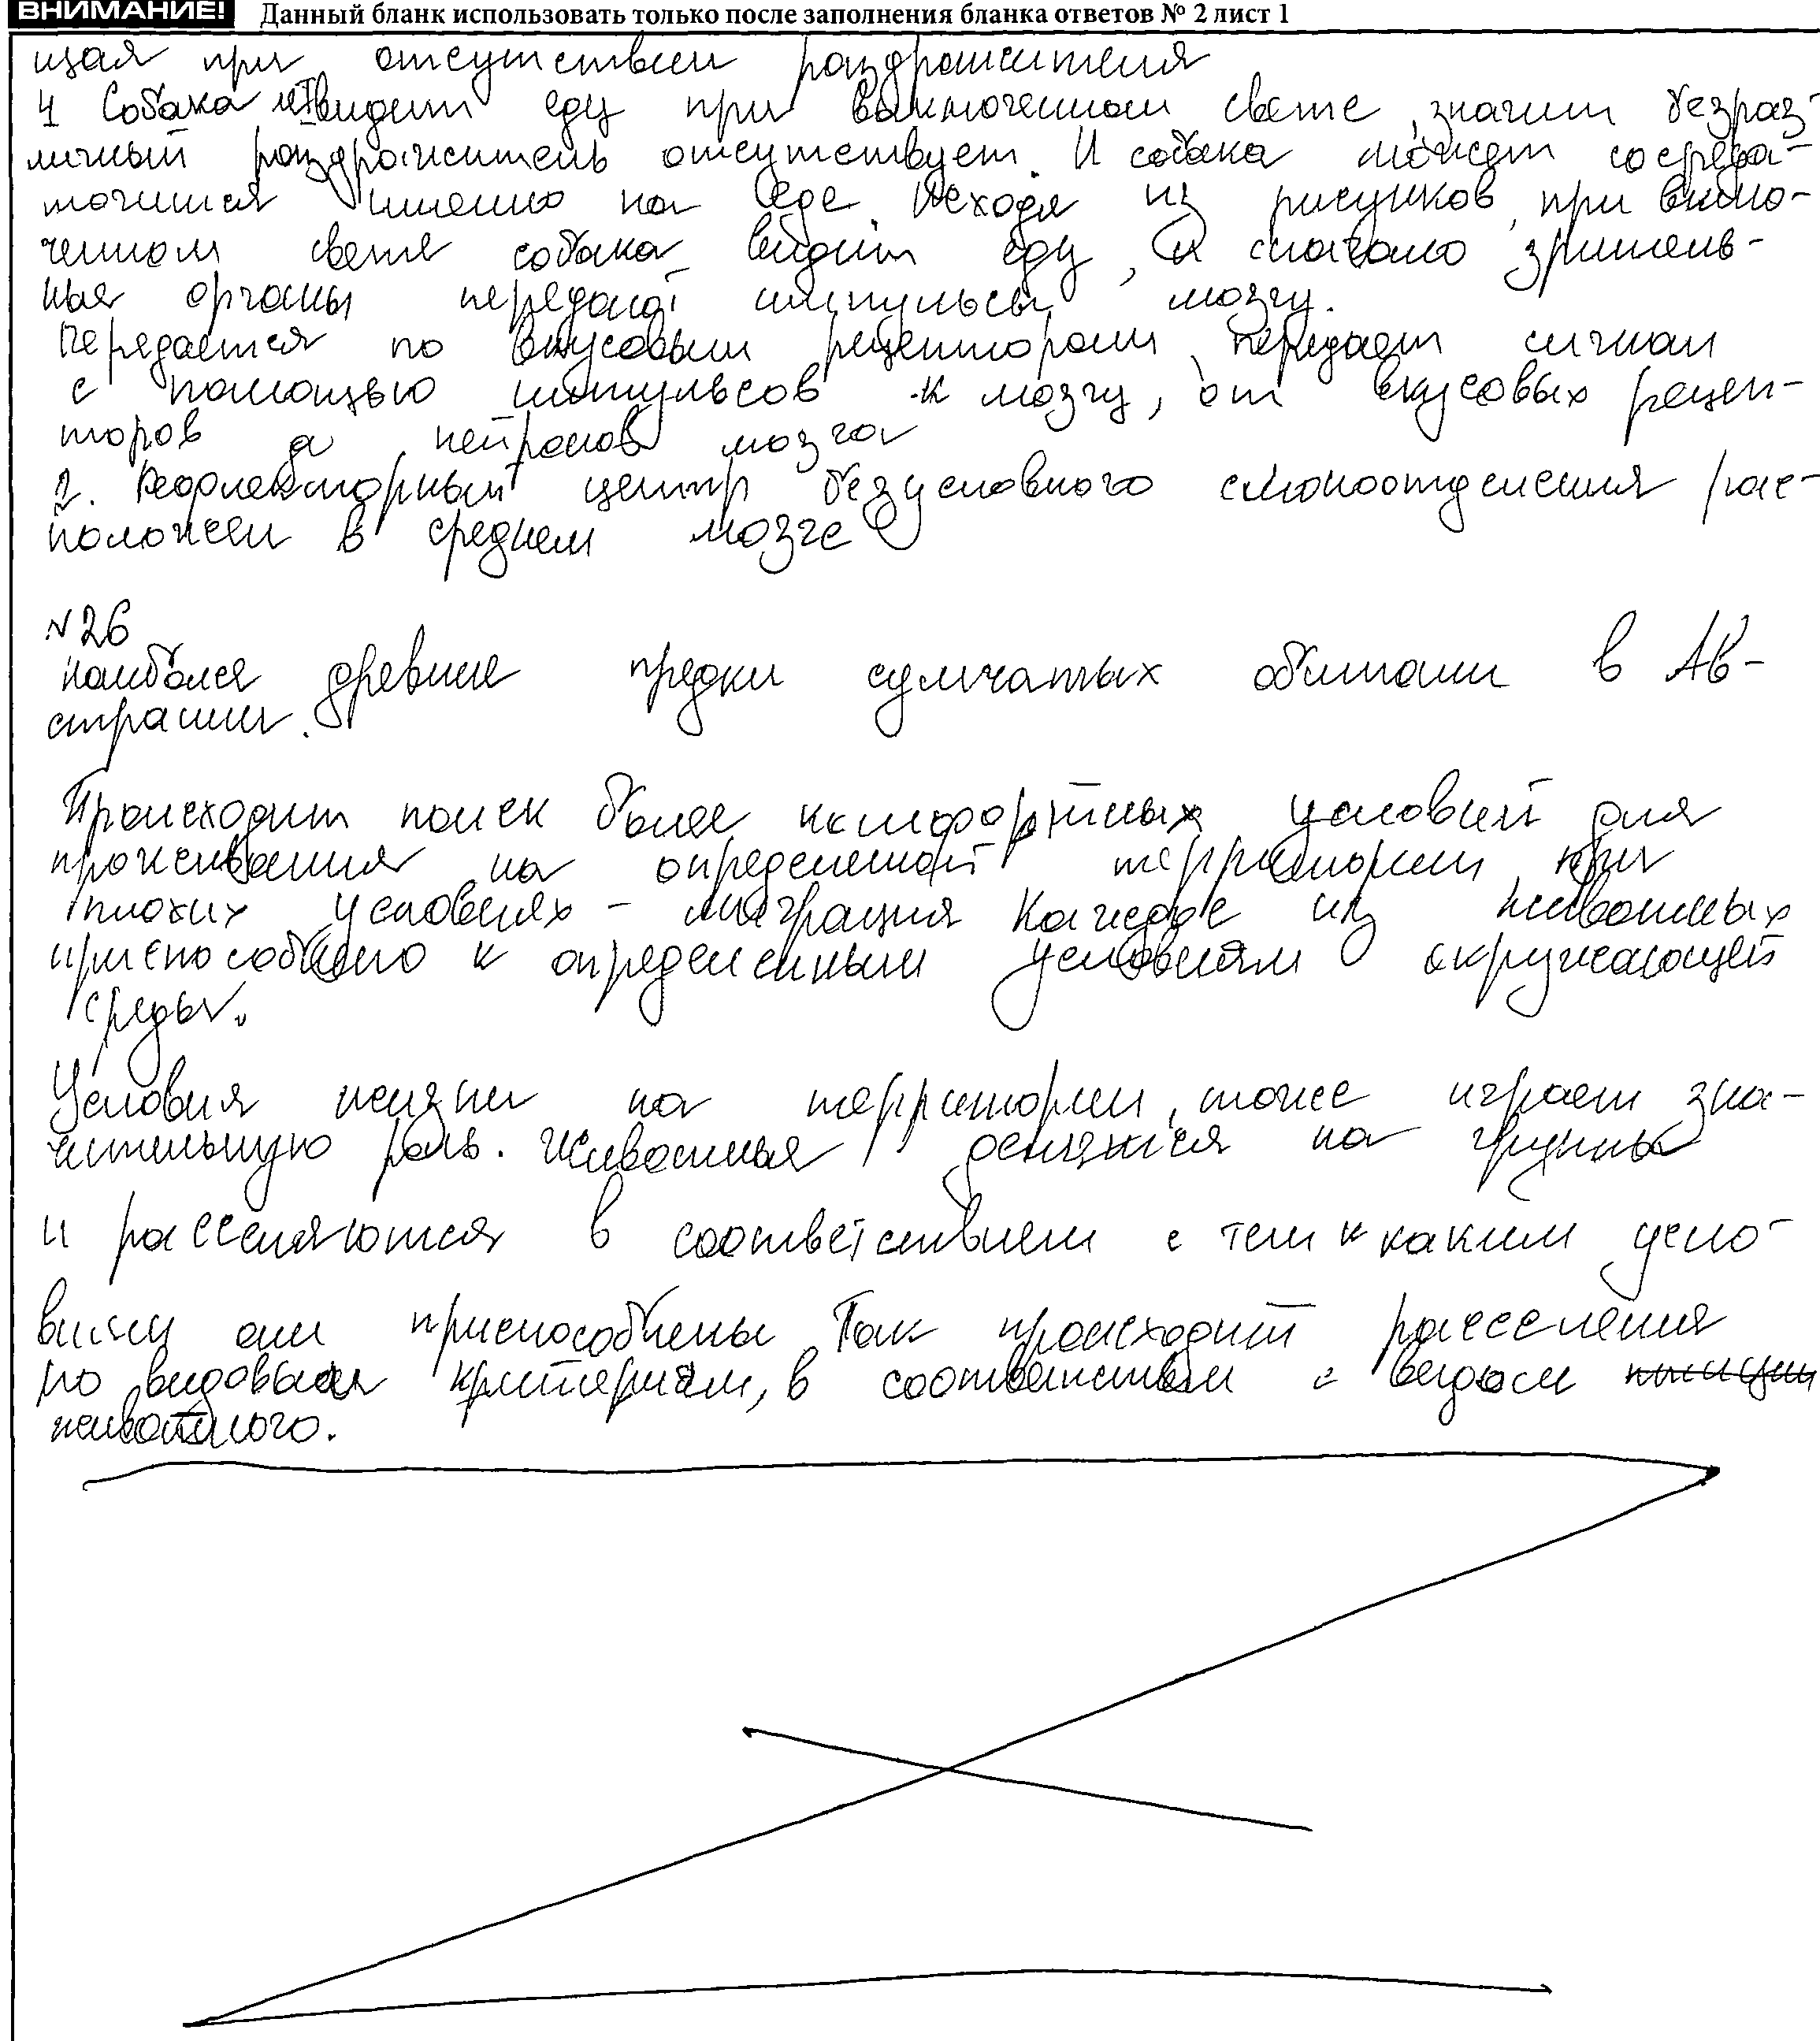 ВНИМАНИЕ! Данный бланк использовать только после заполнения бланка ответов № 2 лист 1
щая при отсутствии раздражителя
4 Собака видит еду при включенном свете, значит безраз-
личный раздражитель отсутствует. И собака может сосредо-
точится именно на еде. Исходя из рисунков, при вклю-
ченном свете собака видит еду, и сначало зритель-
ные органы передают импульсы мозгу.
Передается по вкусовым рецепторам, передает сигнал
с помощью импульсов к мозгу, от вкусовых рецеп-
торов а нейронов мозга
2. Рефлекторный центр безусловного слюноотделения рас-
положен в среднем мозге
№26
наиболее древние предки сумчатых обитали в Ав-
стралии.
Происходит поиск более комфортных условий для
проживания на определенной территории, при
плохих условиях - миграция Каждое из животных
приспособлено к определенным условиям окружающей
среды.
Условия жизни на территории, тоже играет зна-
чительную роль. Животные делятся на группы
и расселяются в соответствием с тем к каким усло-
виям они приспособлены Так происходит расселения
по видовым критериям, в соответствии с видом
животного.